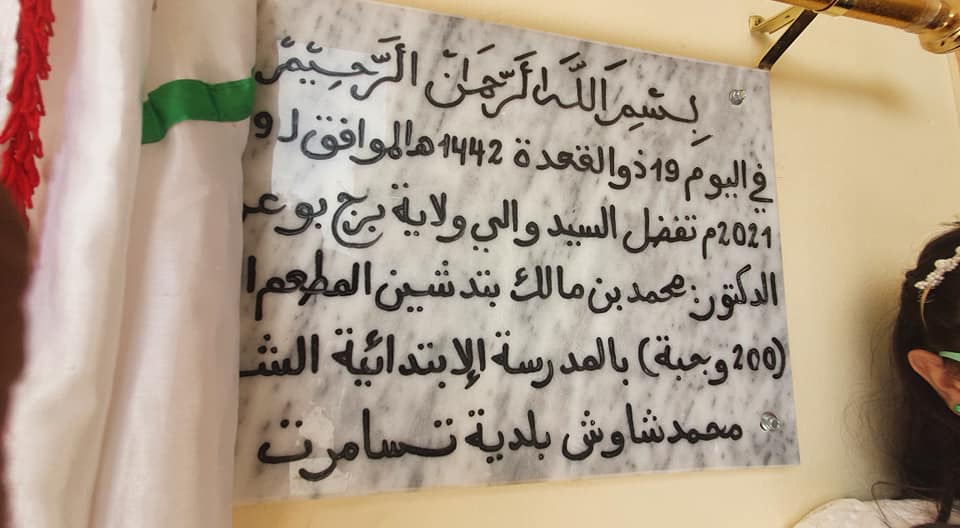 بِسْمِ اللَّهِ الرَّحْمَنِ الرَّحِيْمِ
في اليوم 19 ذو القعدة 1442 هـ الموافق لـ
2021م تفضل السيد والي ولاية برج بو عر
الدكتور: محمد بن مالك بتدشين المطعم ا
(200 وجبة) بالمدرسة الإبتدائية الشـ
محمد شاوش بلدية تسامرت